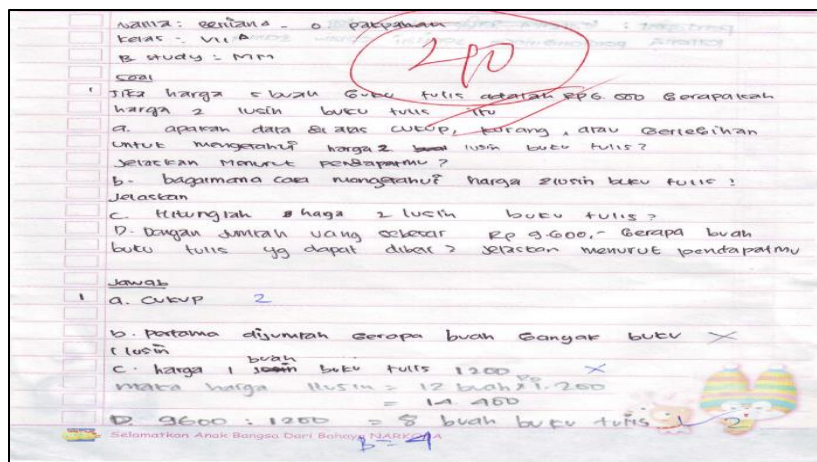 Nama : Beniana - O. Pakpahan
Kelas - VII A
B study : MM
40
Soal
1 Jika harga 5 buah buku tulis adalah Rp 6.000 berapakah
harga 2 lusin buku tulis itu
a. apakah data di atas cukup, kurang, atau berlebihan
untuk mengetahui harga 2 lusin buku tulis?
Jelaskan menurut pendapatmu?
b. bagaimana cara mengetahui harga 2lusin buku tulis?
Jelaskan
C. Hitunglah haga 2 lusin buku tulis?
D. Dengan Jumlah uang sebesar Rp 9.600,- berapa buah
buku tulis yg dapat dibeli? jelaskan menurut pendapatmu
Jawab
1 a. cukup 2
b. pertama dijumlah berapa buah banyak buku
1 lusin
C. harga 1 buah buku tulis 1200
maka harga 1lusin = 12 buah x Rp 1.200
= 14.400
D. 9600 : 1200 = 8 buah buku tulis 2
Selamatkan Anak Bangsa Dari Bahaya NARKOBA
B = 4